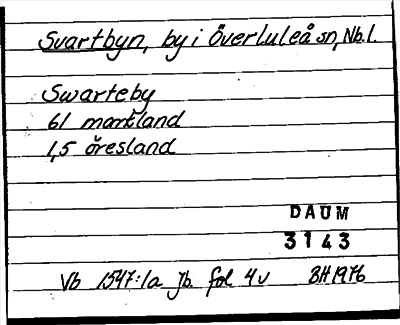 Svartbyn, by i Överluleå sn, Nb.l.
Swarteby
61 markland
1,5 öresland
DAUM
3143
Vb 1547:1a Jb fol 4v BH 1976